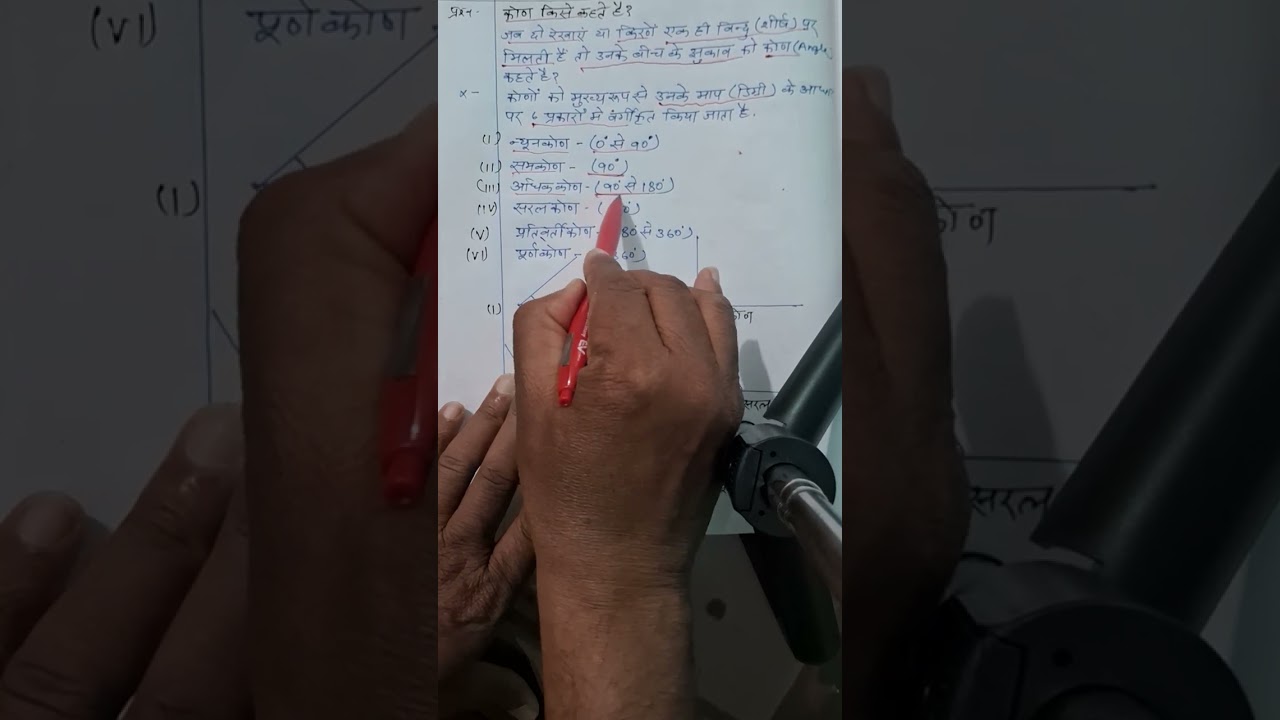 प्रश्न- कोण किसे कहते है?
जब दो रेखाएं या किरणें एक ही बिन्दु (शीर्ष) पर
मिलती हैं तो उनके बीच के झुकाव को कोण (Angle
कहते है?
x- कोणों को मुख्यरूप से उनके माप (डिग्री) के
पर ६ प्रकारों में वर्गीकृत किया जाता है.
(I) न्यूनकोण - (0° से 90°)
(II) समकोण - (90°)
(III) अधिककोण - (90° से 180°)
(IV) सरलकोण -
(V) प्रतिवर्तीकोण - से 360°)
(VI) पूर्णकोण -
(I)
सरल
(VI) पूर्णकोण
(I)
सरल